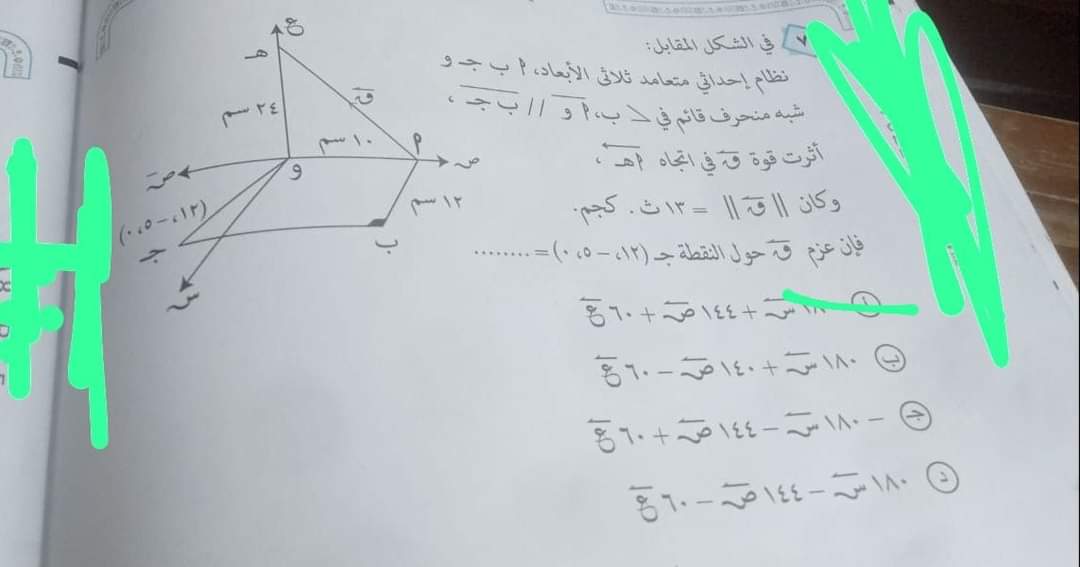 في الشكل المقابل:
نظام إحداثي متعامد ثلاثى الأبعاد، ٩ ب جـ و
شبه منحرف قائم في ∠ ب، ٩ و // ب جـ ،
أثرت قوة ق في اتجاه ٩هـ ،
وكان || ق || = ١٣ ث. كجم.
فإن عزم ق حول النقطة جـ (١٢، -٥، ٠) = ........
س + ١٤٤ ص + ٦٠ ع
ب ١٨٠ س + ١٤٠ ص - ٦٠ ع
جـ - ١٨٠ س - ١٤٤ ص + ٦٠ ع
د ١٨٠ س - ١٤٤ ص - ٦٠ ع
ع
هـ
ق
٢٤ سم
١٠ سم
٩
ص
صَ
و
١٢ سم
(١٢، -٥، ٠)
جـ
ب
س